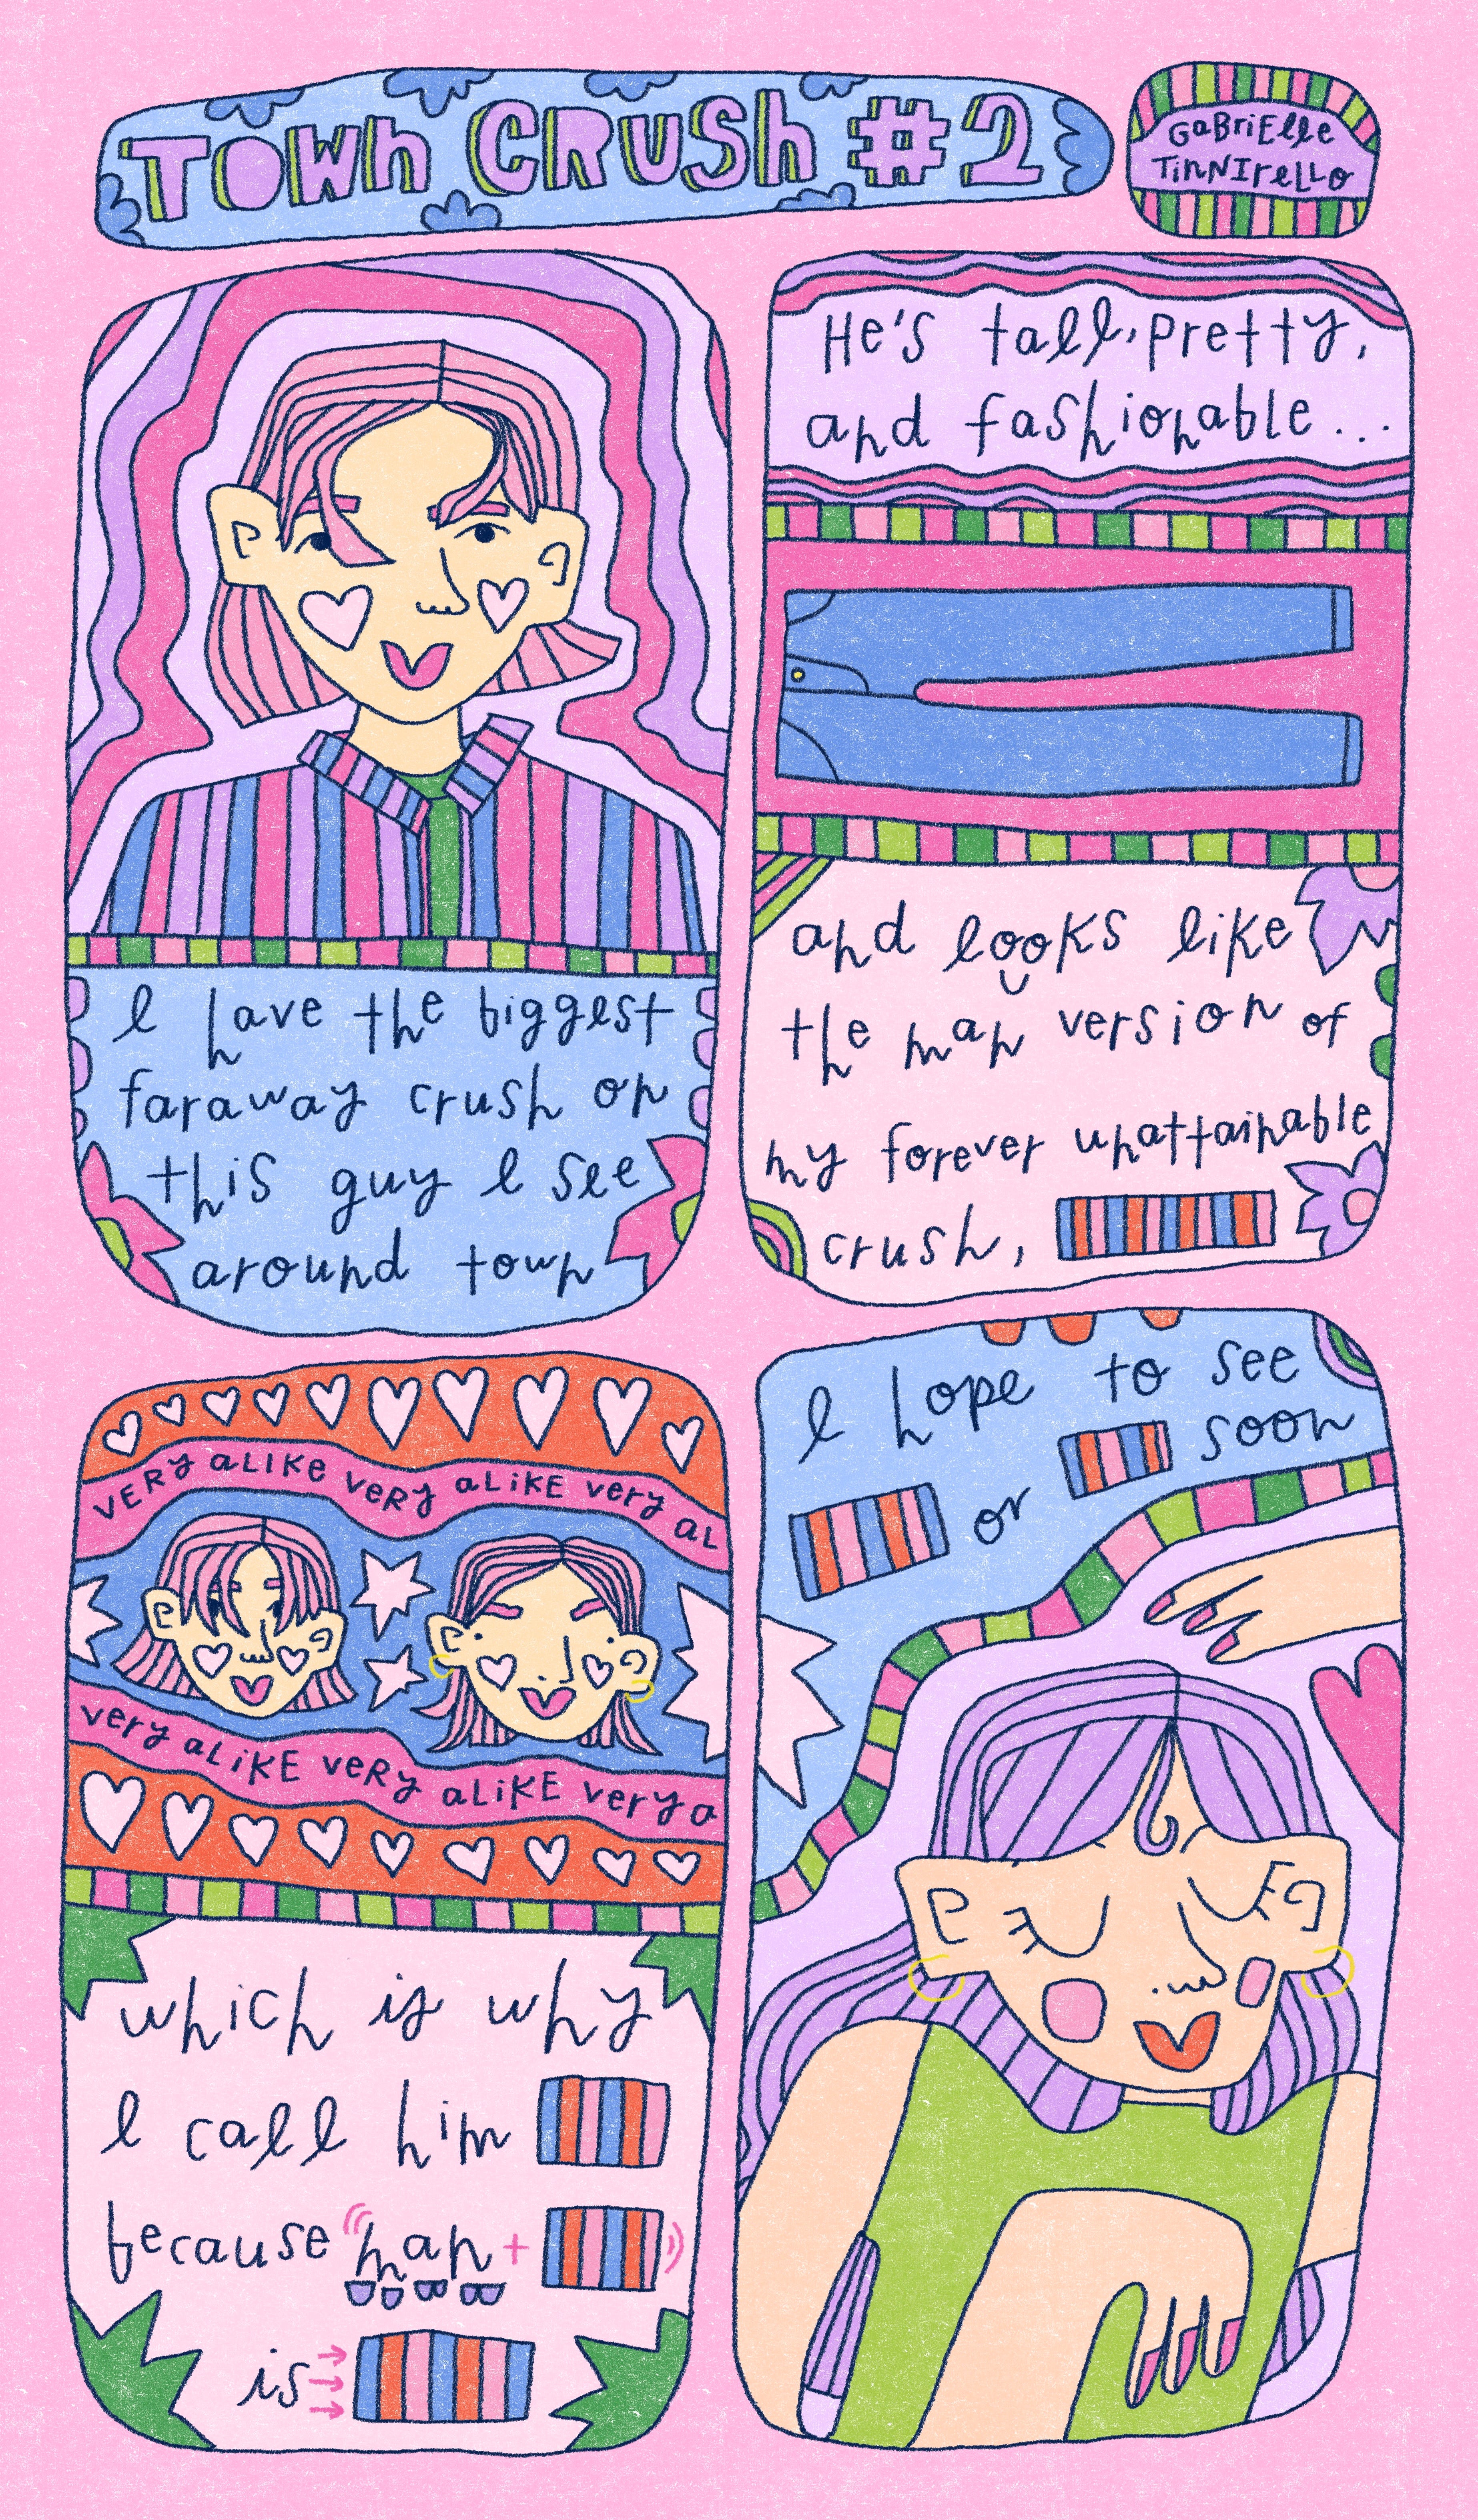 TOWN CRUSH #2
GABRIELLE
TINNIRELLO
I have the biggest
faraway crush on
this guy I see
around town
He's tall, pretty,
and fashionable...
and looks like
the man version of
my forever unattainable
crush,
VERY ALIKE VERY ALIKE VERY AL
VERY ALIKE VERY ALIKE VERY A
which is why
I call him
because man +
is
I hope to see
or soon